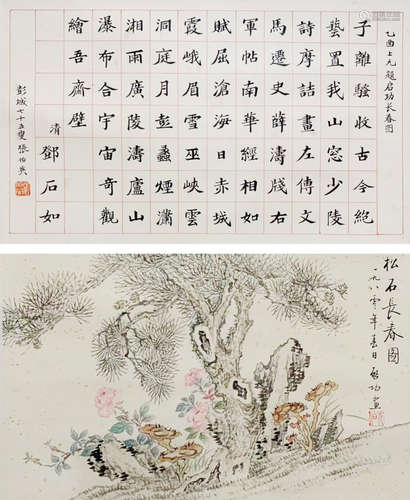 乙酉上元題启功长春图
子離騷收古今絕
藝置我山窗少陵
詩摩詰畫左傳文
馬遷史薛濤牋右
軍帖南華經相如
賦屈滄海日赤城
霞峨眉雪巫峽雲
洞庭月彭蠡煙瀟
湘雨廣陵濤廬山
瀑布合宇宙奇觀
繪吾齋壁
清鄧石如
彭城七十五叟張伯英
松石長春圖
一九八〇年春日啟功画